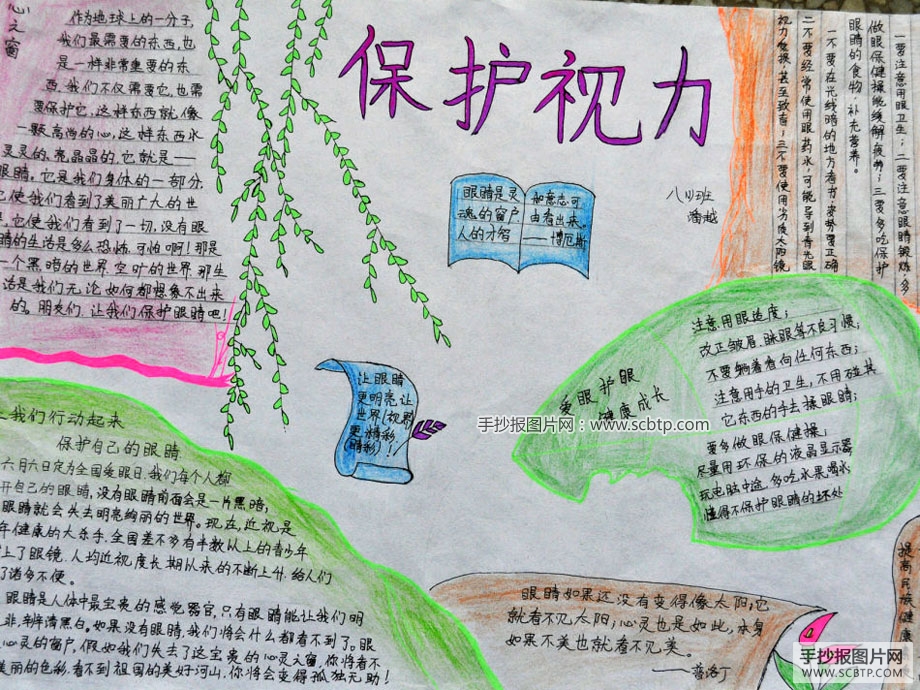 心之窗
作为地球上的一分子,
我们最需要的东西,也
是一样非常重要的东
西,我们不仅需要它,也需
要保护它,这样东西就像
一颗高尚的心,这样东西水
灵灵的、亮晶晶的,它就是——
眼睛。它是我们身体的一部分,
它使我们看到了美丽广大的世
界,它使我们看到了一切,没有眼
睛的生活是多么恐怖,可怕啊!那是
一个黑暗的世界,空旷的世界,那生
活是我们无论如何都想象不出来
的。朋友们,让我们保护眼睛吧!
保护视力
八(4)班
潘越
眼睛是灵
魂的窗户
人的才智
和意志可
由看出来。
——博厄斯
一要注意用眼卫生;二要注意眼睛锻炼,多
做眼保健操能缓解疲劳;三要多吃保护
眼睛的食物,补充营养。
一不要在光线暗的地方看书,姿势要正确
二不要经常使用眼药水,可能导到青光眼
视力受损,甚至致盲;三不要使用劣质太阳镜
让眼睛
更明亮,让
世界(视界)
更精彩
(睛彩)!
爱眼护眼
健康成长
注意用眼适度;
改正皱眉、眯眼等不良习惯;
不要躺着看向任何东西;
注意用手的卫生,不用碰其
它东西的手去揉眼睛;
要多做眼保健操;
尽量用环保的液晶显示器
玩电脑中途,多吃水果喝水
懂得不保护眼睛的坏处
手抄报图片网:www.scbtp.com
让我们行动起来
保护自己的眼睛
六月六日定为全国爱眼日,我们每个人都
开自己的眼睛,没有眼睛前面会是一片黑暗,
眼睛就会失去明亮绚丽的世界。现在,近视是
年健康的大杀手,全国差不多有半数以上的青少年
上了眼镜,人均近视度长期以来的不断上升,给人们
了诸多不便。
眼睛是人体中最宝贵的感觉器官,只有眼睛能让我们明
非,辨清黑白。如果没有眼睛,我们将会什么都看不到了。眼
心灵的窗户,假如我们失去了这宝贵的心灵之窗,你将看不
美丽的色彩,看不到祖国的美好河山,你将会变得孤独无助!
眼睛如果还没有变得像太阳,它
就看不见太阳;心灵也是如此,本身
如果不美也就看不见美。
——普洛丁
提高民族健康
手抄报图片网
WWW.SCBTP.COM